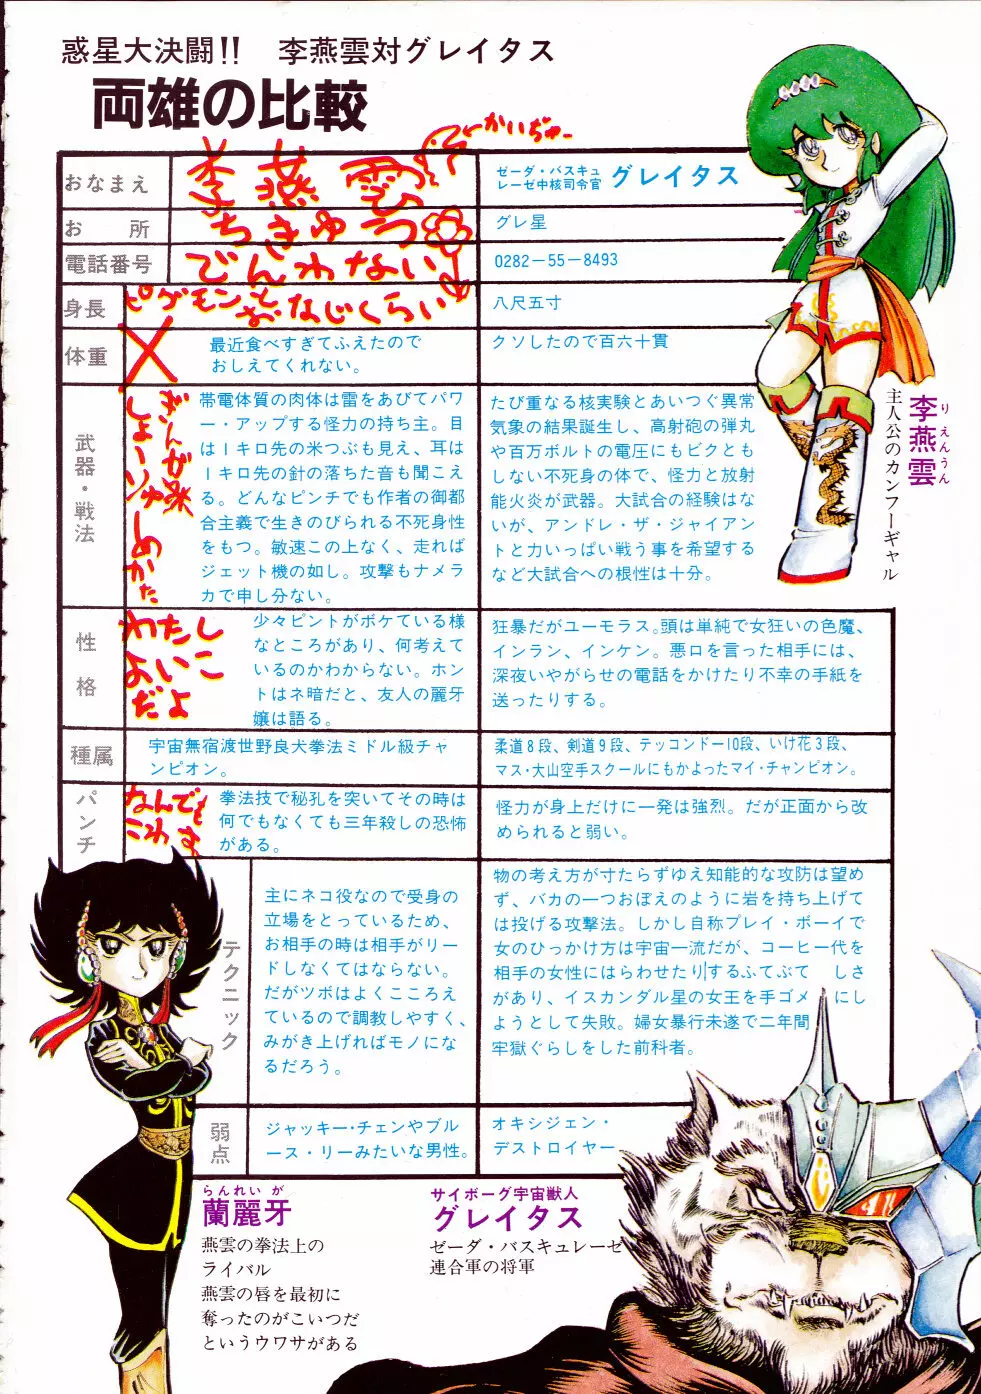 惑星大決闘!!　李燕雲対グレイタス
両雄の比較
おなまえ
李燕雲
かいぢゅー
ゼーダ・バスキュ
レーゼ中核司令官 グレイタス
お所
ちきゅう
グレ星
電話番号
でんわない
0282-55-8493
身長
ピグモンと
おなじくらい
八尺五寸
体重
最近食べすぎてふえたので
おしえてくれない。
クソしたので百六十貫
武器・戦法
ぎんが
しょーりゅー
しめかた
帯電体質の肉体は雷をあびてパワ
ー・アップする怪力の持ち主。目
は1キロ先の米つぶも見え、耳は
1キロ先の針の落ちた音も聞こえ
る。どんなピンチでも作者の御都
合主義で生きのびられる不死身性
をもつ。敏速この上なく、走れば
ジェット機の如し。攻撃もナメラ
カで申し分ない。
たび重なる核実験とあいつぐ異常
気象の結果誕生し、高射砲の弾丸
や百万ボルトの電圧にもビクとも
しない不死身の体で、怪力と放射
能火炎が武器。大試合の経験はな
いが、アンドレ・ザ・ジャイアン
トと力いっぱい戦う事を希望する
など大試合への根性は十分。
性格
わたし
よいこ
だよ
少々ピントがボケている様
なところがあり、何考えて
いるのかわからない。ホン
トはネ暗だと、友人の麗牙
嬢は語る。
狂暴だがユーモラス。頭は単純で女狂いの色魔、
インラン、インケン。悪口を言った相手には、
深夜いやがらせの電話をかけたり不幸の手紙を
送ったりする。
種属
宇宙無宿渡世野良犬拳法ミドル級チャ
ンピオン。
柔道8段、剣道9段、テッコンドー10段、いけ花3段、
マス・大山空手スクールにもかよったマイ・チャンピオン。
パンチ
なんでも
こわす
拳法技で秘孔を突いてその時は
何でもなくても三年殺しの恐怖
がある。
怪力が身上だけに一発は強烈。だが正面から改
められると弱い。
テクニック
主にネコ役なので受身の
立場をとっているため、
お相手の時は相手がリー
ドしなくてはならない。
だがツボはよくこころえ
ているので調教しやすく、
みがき上げればモノにな
るだろう。
物の考え方が寸たらずゆえ知能的な攻防は望め
ず、バカの一つおぼえのように岩を持ち上げて
は投げる攻撃法。しかし自称プレイ・ボーイで
女のひっかけ方は宇宙一流だが、コーヒー代を
相手の女性にはらわせたりするふてぶて しさ
があり、イスカンダル星の女王を手ゴメ にし
ようとして失敗。婦女暴行未遂で二年間
牢獄ぐらしをした前科者。
弱点
ジャッキー・チェンやブル
ース・リーみたいな男性。
オキシジェン・
デストロイヤー
りえんうん
李燕雲
主人公のカンフーギャル
らんれいが
蘭麗牙
燕雲の拳法上の
ライバル
燕雲の唇を最初に
奪ったのがこいつだ
というウワサがある
サイボーグ宇宙獣人
グレイタス
ゼーダ・バスキュレーゼ
連合軍の将軍